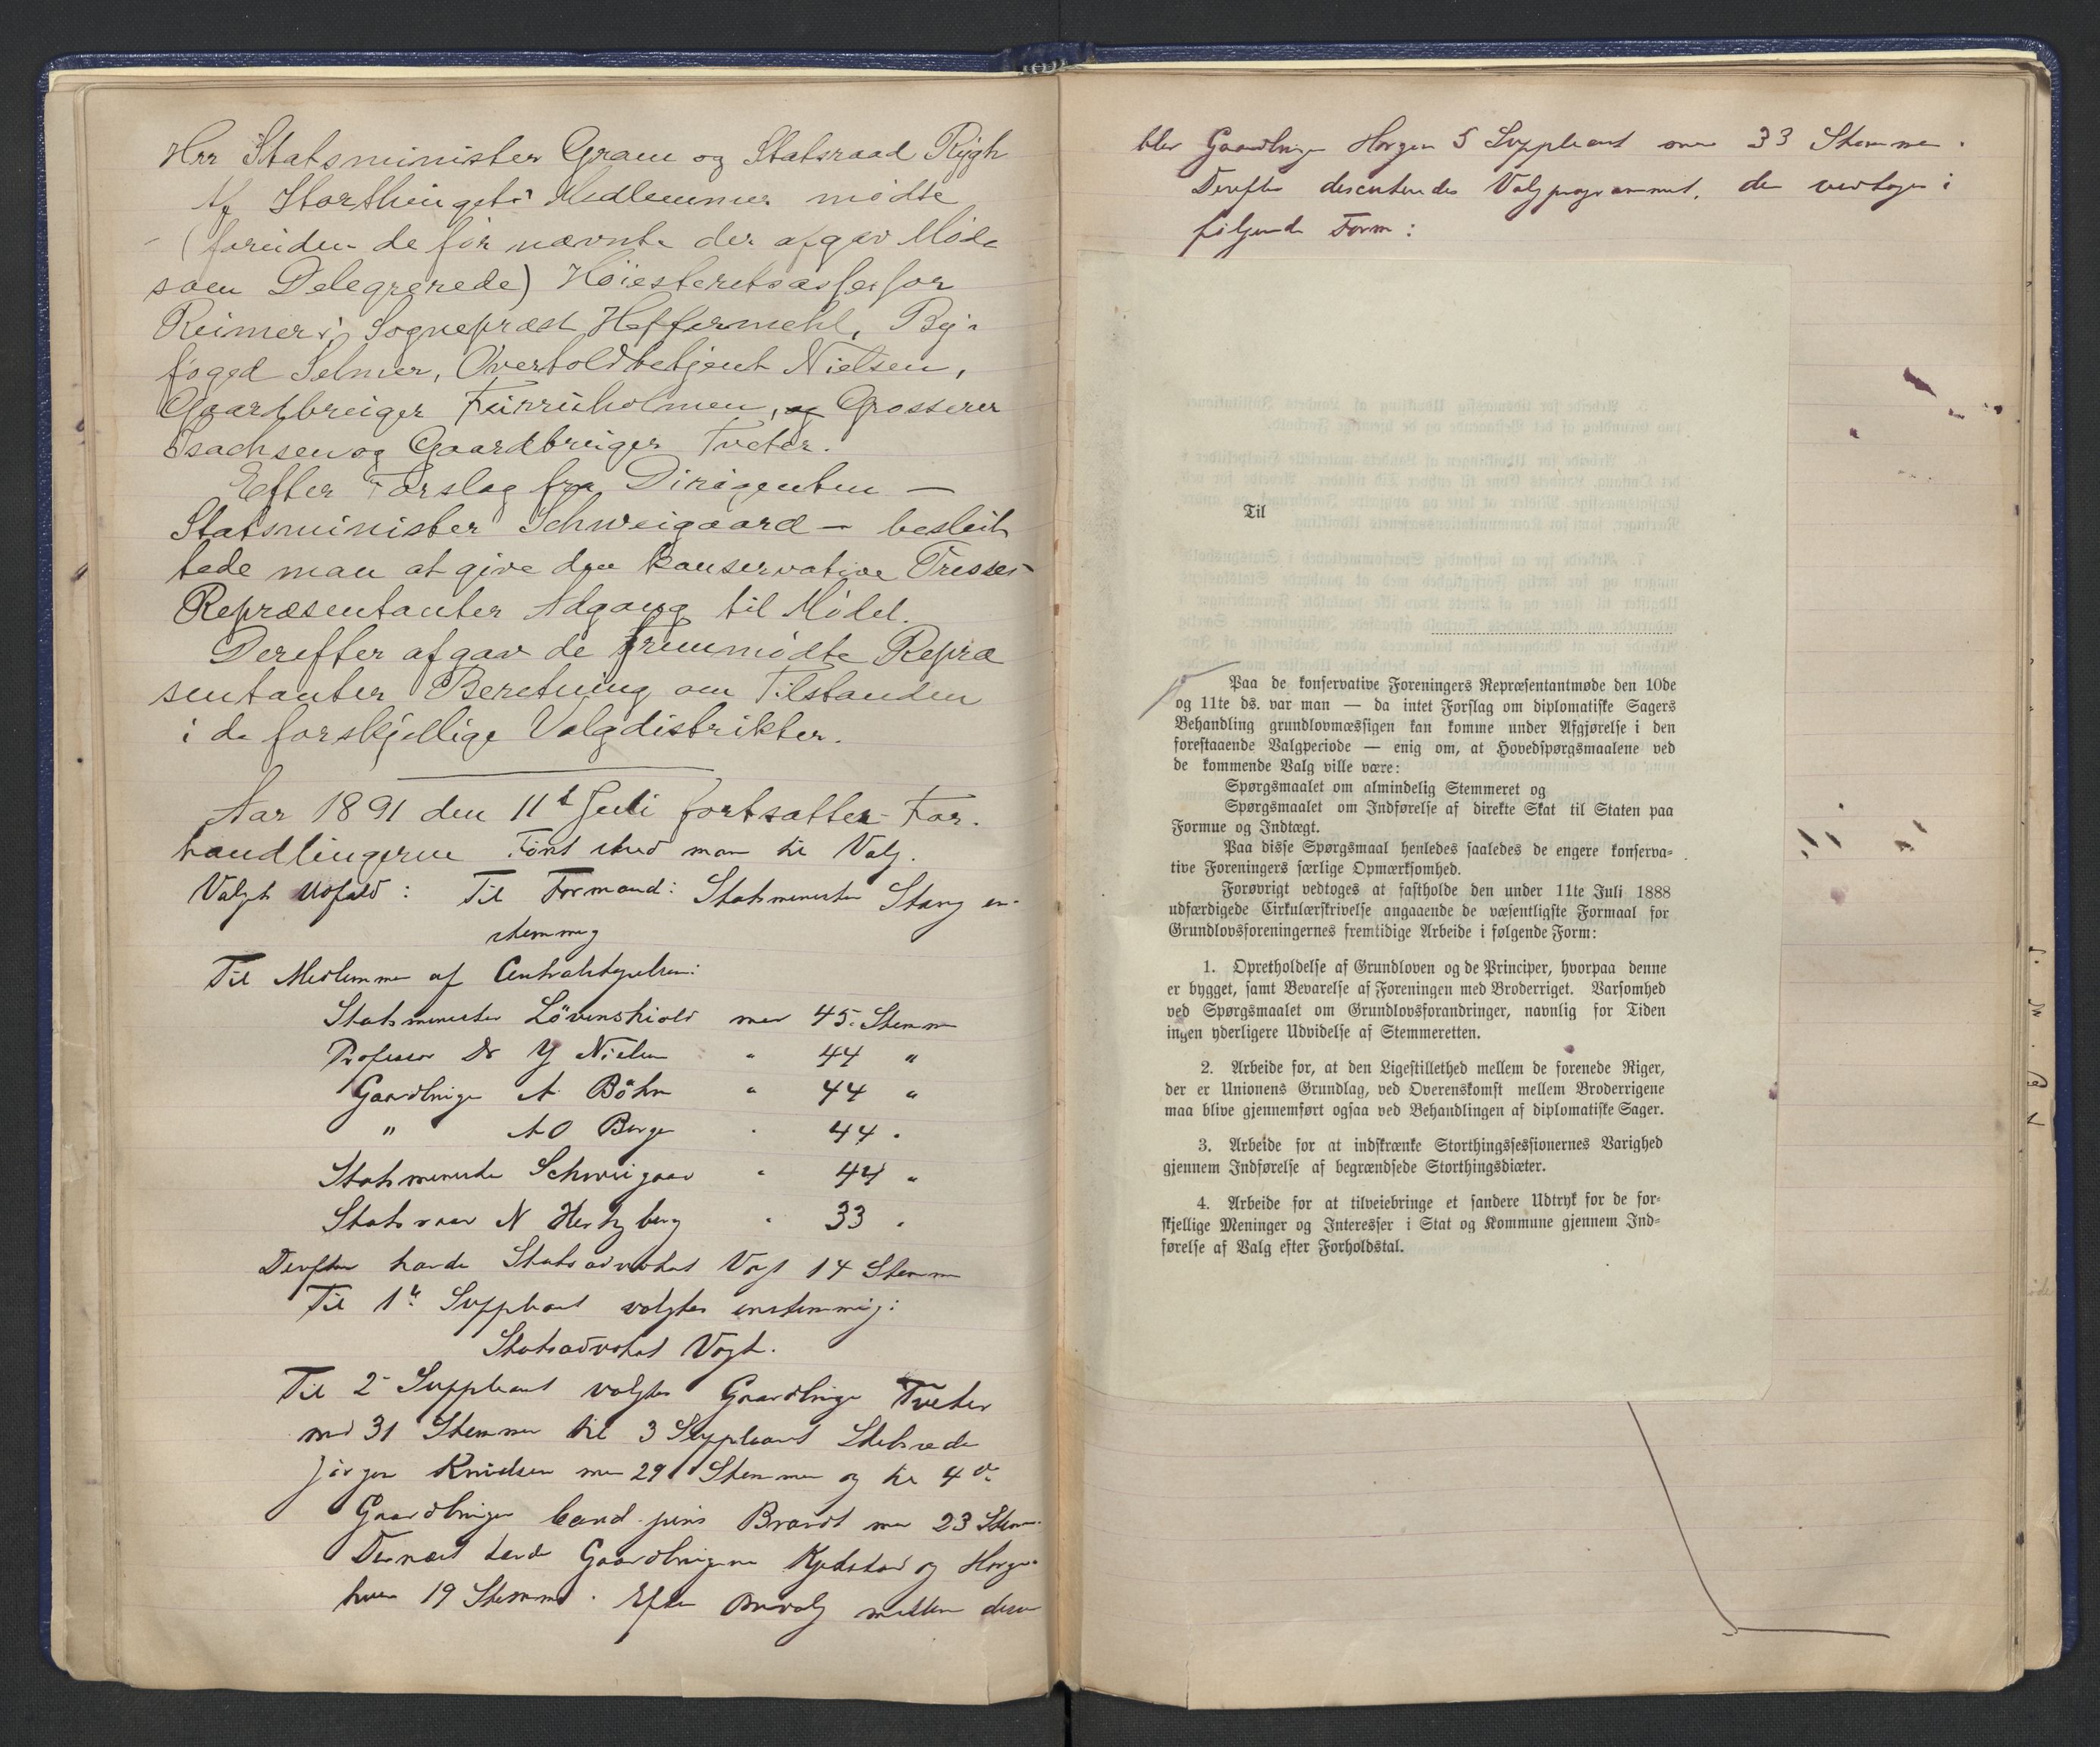 Hrr Statsminister Gram og Statsraad Rygh
Af Storthingets Medlemmer mødte
(foruden de før nævnte der afgav Møde
som Delegerede) Høiesteretsassessor
Reimers, Sognepræst Heffermehl, By-
foged Selmer, Overtoldbetjent Nielsen,
Gaardbruger Furruholmen, og Grosserer
Isachsen og Gaardbruger Tveter.
Efter Forslag fra Dirigenten —
Statsminister Schweigaard — beslut
tede man at give den konservative Presses
Repræsentanter Adgang til Mødet.
Derefter afgav de fremmødte Repræ
sentanter Beretning om Tilstanden
i de forskjellige Valgdistrikter.
Aar 1891 den 11te Juli fortsattes For-
handlingerne. Først skred man til Valg.
Valgets Udfald: Til Formand: Statsminister Stang en-
stemmig
Til Medlemmer af Centralstyrelsen:
Statsminister Lövenskiold med 45 Stemmer
Professor Dr Y Nielsen " 44 "
Gaardbruger A. Böhn " 44 "
" A O Berger " 44 "
Statsminister Schweigaard " 44 "
Statsraad N Hertzberg " 33 "
Derefter havde Statsadvokat Vogt 14 Stemmer
Til 1ste Suppleant valgtes enstemmig:
Statsadvokat Vogt.
Til 2 Suppleant valgtes Gaardbruger Tveter
med 31 Stemmer til 3 Suppleant
Jörgen Knudsen med 29 Stemmer og til 4de
Gaardbruger Cand. juris Brandt med 23 Stemmer
Dernæst havde Gaardbrugerne og Horgen
hver 19 Stemmer. Efter Omvalg mellem disse
blev Gaardbruger Horgen 5 Suppleant med 33 Stemmer.
Derefter discuteredes Valgprogrammet, der vedtoges i
følgende Form:
Til
Paa de konservative Foreningers Repræsentantmøde den 10de
og 11te ds. var man — da intet Forslag om diplomatiske Sagers
Behandling grundlovmæssigen kan komme under Afgjørelse i den
forestaaende Valgperiode — enig om, at Hovedspørgsmaalene ved
de kommende Valg ville være:
Spørgsmaalet om almindelig Stemmeret og
Spørgsmaalet om Indførelse af direkte Skat til Staten paa
Formue og Indtægt.
Paa disse Spørgsmaal henledes saaledes de engere konserva-
tive Foreningers særlige Opmærksomhed.
Forøvrigt vedtoges at fastholde den under 11te Juli 1888
udfærdigede Cirkulærskrivelse angaaende de væsentligste Formaal for
Grundlovsforeningernes fremtidige Arbeide i følgende Form:
1. Opretholdelse af Grundloven og de Principer, hvorpaa denne
er bygget, samt Bevarelse af Foreningen med Broderriget. Varsomhed
ved Spørgsmaalet om Grundlovsforandringer, navnlig for Tiden
ingen yderligere Udvidelse af Stemmeretten.
2. Arbeide for, at den Ligestillethed mellem de forenede Riger,
der er Unionens Grundlag, ved Overenskomst mellem Broderrigene
maa blive gjennemført ogsaa ved Behandlingen af diplomatiske Sager.
3. Arbeide for at indskrænke Storthingssessionernes Varighed
gjennem Indførelse af begrændsede Storthingsdiæter.
4. Arbeide for at tilveiebringe et sandere Udtryk for de for-
skjellige Meninger og Interesser i Stat og Kommune gjennem Ind-
førelse af Valg efter Forholdstal.